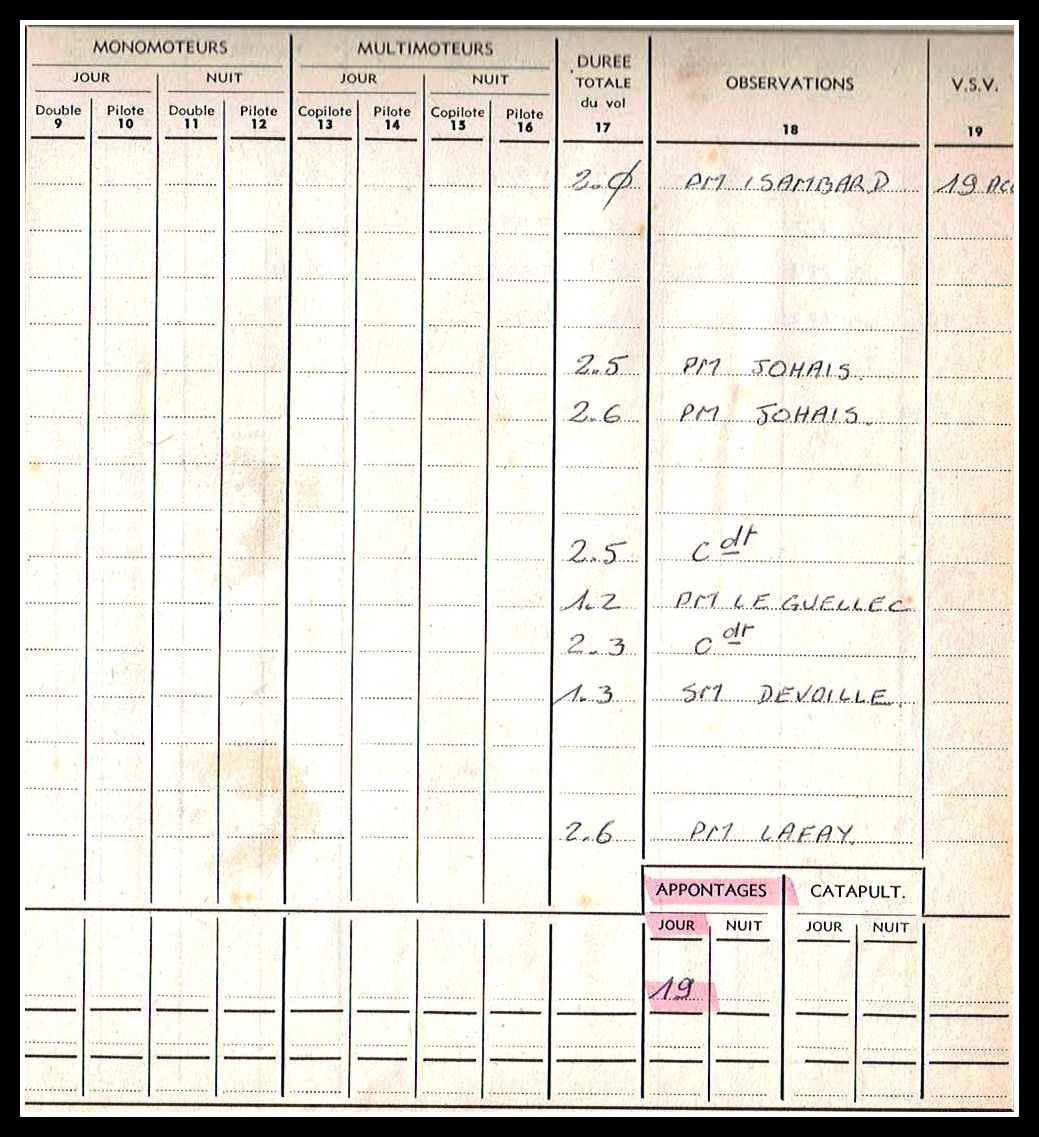 MONOMOTEURS MULTIMOTEURS DUREE TOTALE du vol 17 OBSERVATIONS 18 V.S.V. 19
JOUR NUIT JOUR NUIT
Double 9 Pilote 10 Double 11 Pilote 12 Copilote 13 Pilote 14 Copilote 15 Pilote 16
2.0 PM ISAMBARD 19 Acc
2.5 PM JOHAIS.
2.6 PM JOHAIS.
2.5 Cdt
1.2 PM LE GUELLEC
2.3 Cdt
1.3 SM DEVOILLE.
2.6 PM LAFAY.
APPONTAGES CATAPULT.
JOUR NUIT JOUR NUIT
19